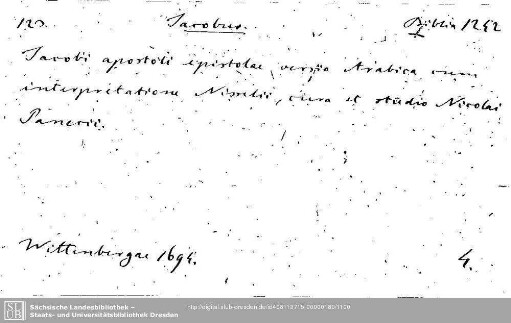 123. Jacobus. Biblia 1242
Jacobi apostoli epistolae versio Arabica cum
interpretatione Nisselii, cura et studio Nicolai
Panecii.
Wittenbergae 1694. 4.
Sächsische Landesbibliothek –
Staats- und Universitätsbibliothek Dresden
SLUB